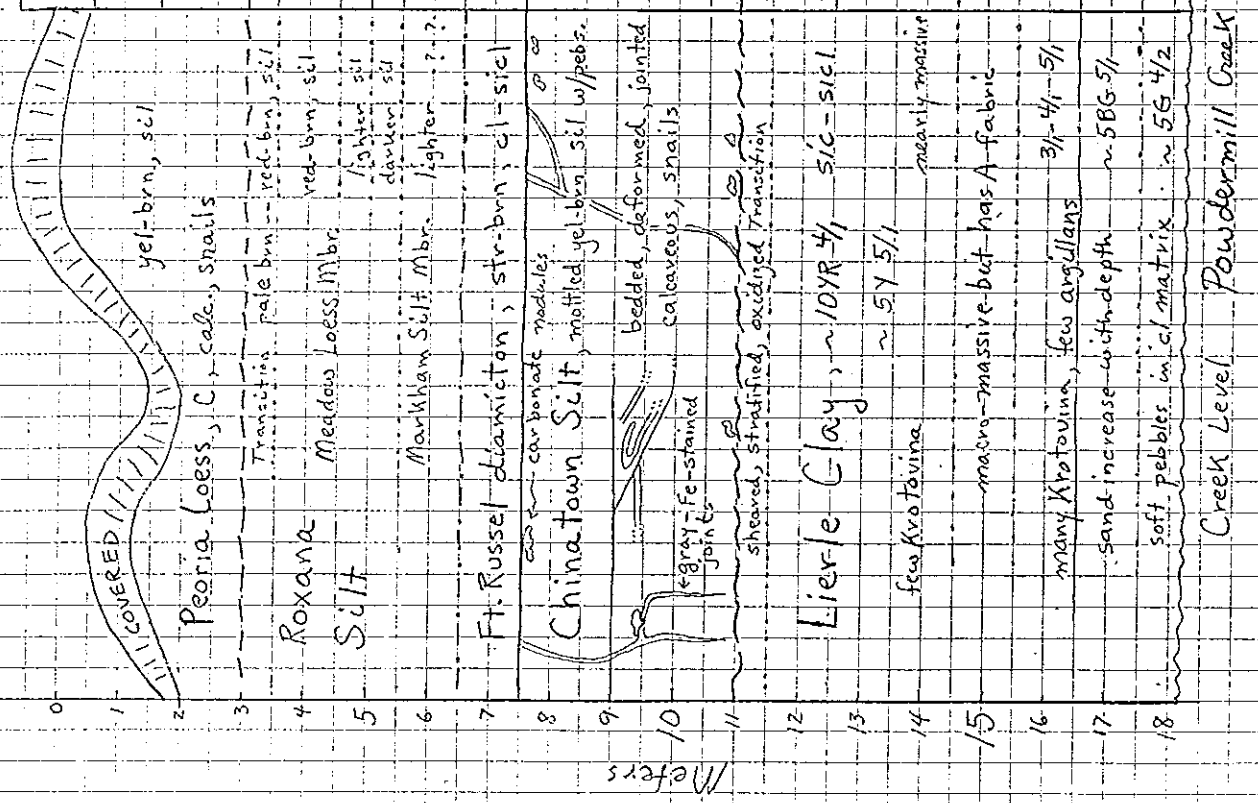 COVERED
yel-brn, sil
Peoria Loess, C, calc., snails
Transition pale brn - red-brn, sil
Roxana
Silt
red-brn, sil
Meadow Loess Mbr.
lighter sil
darker sil
Markham Silt Mbr. lighter ? - ?
Ft. Russel diamicton, str-brn, cl-sicl
carbonate nodules
Chinatown Silt, mottled yel-brn sil w/pebs.
bedded, deformed, jointed
calcareous, snails
gray-Fe-stained
joints
sheared, stratified, oxidized Transition
Lierle Clay, ~10YR 4/1 sic-sicl
~5Y 5/1
few Krotovina nearly massive
macro-massive but has A-fabric
many Krotovina, few argillans 3/1-4/1-5/1
sand increase with depth ~5BG 5/1
soft pebbles in cl matrix ~5G 4/2
Creek Level Powdermill Creek
0
1
2
3
4
5
6
7
8
9
10
11
12
13
14
15
16
17
18
Meters